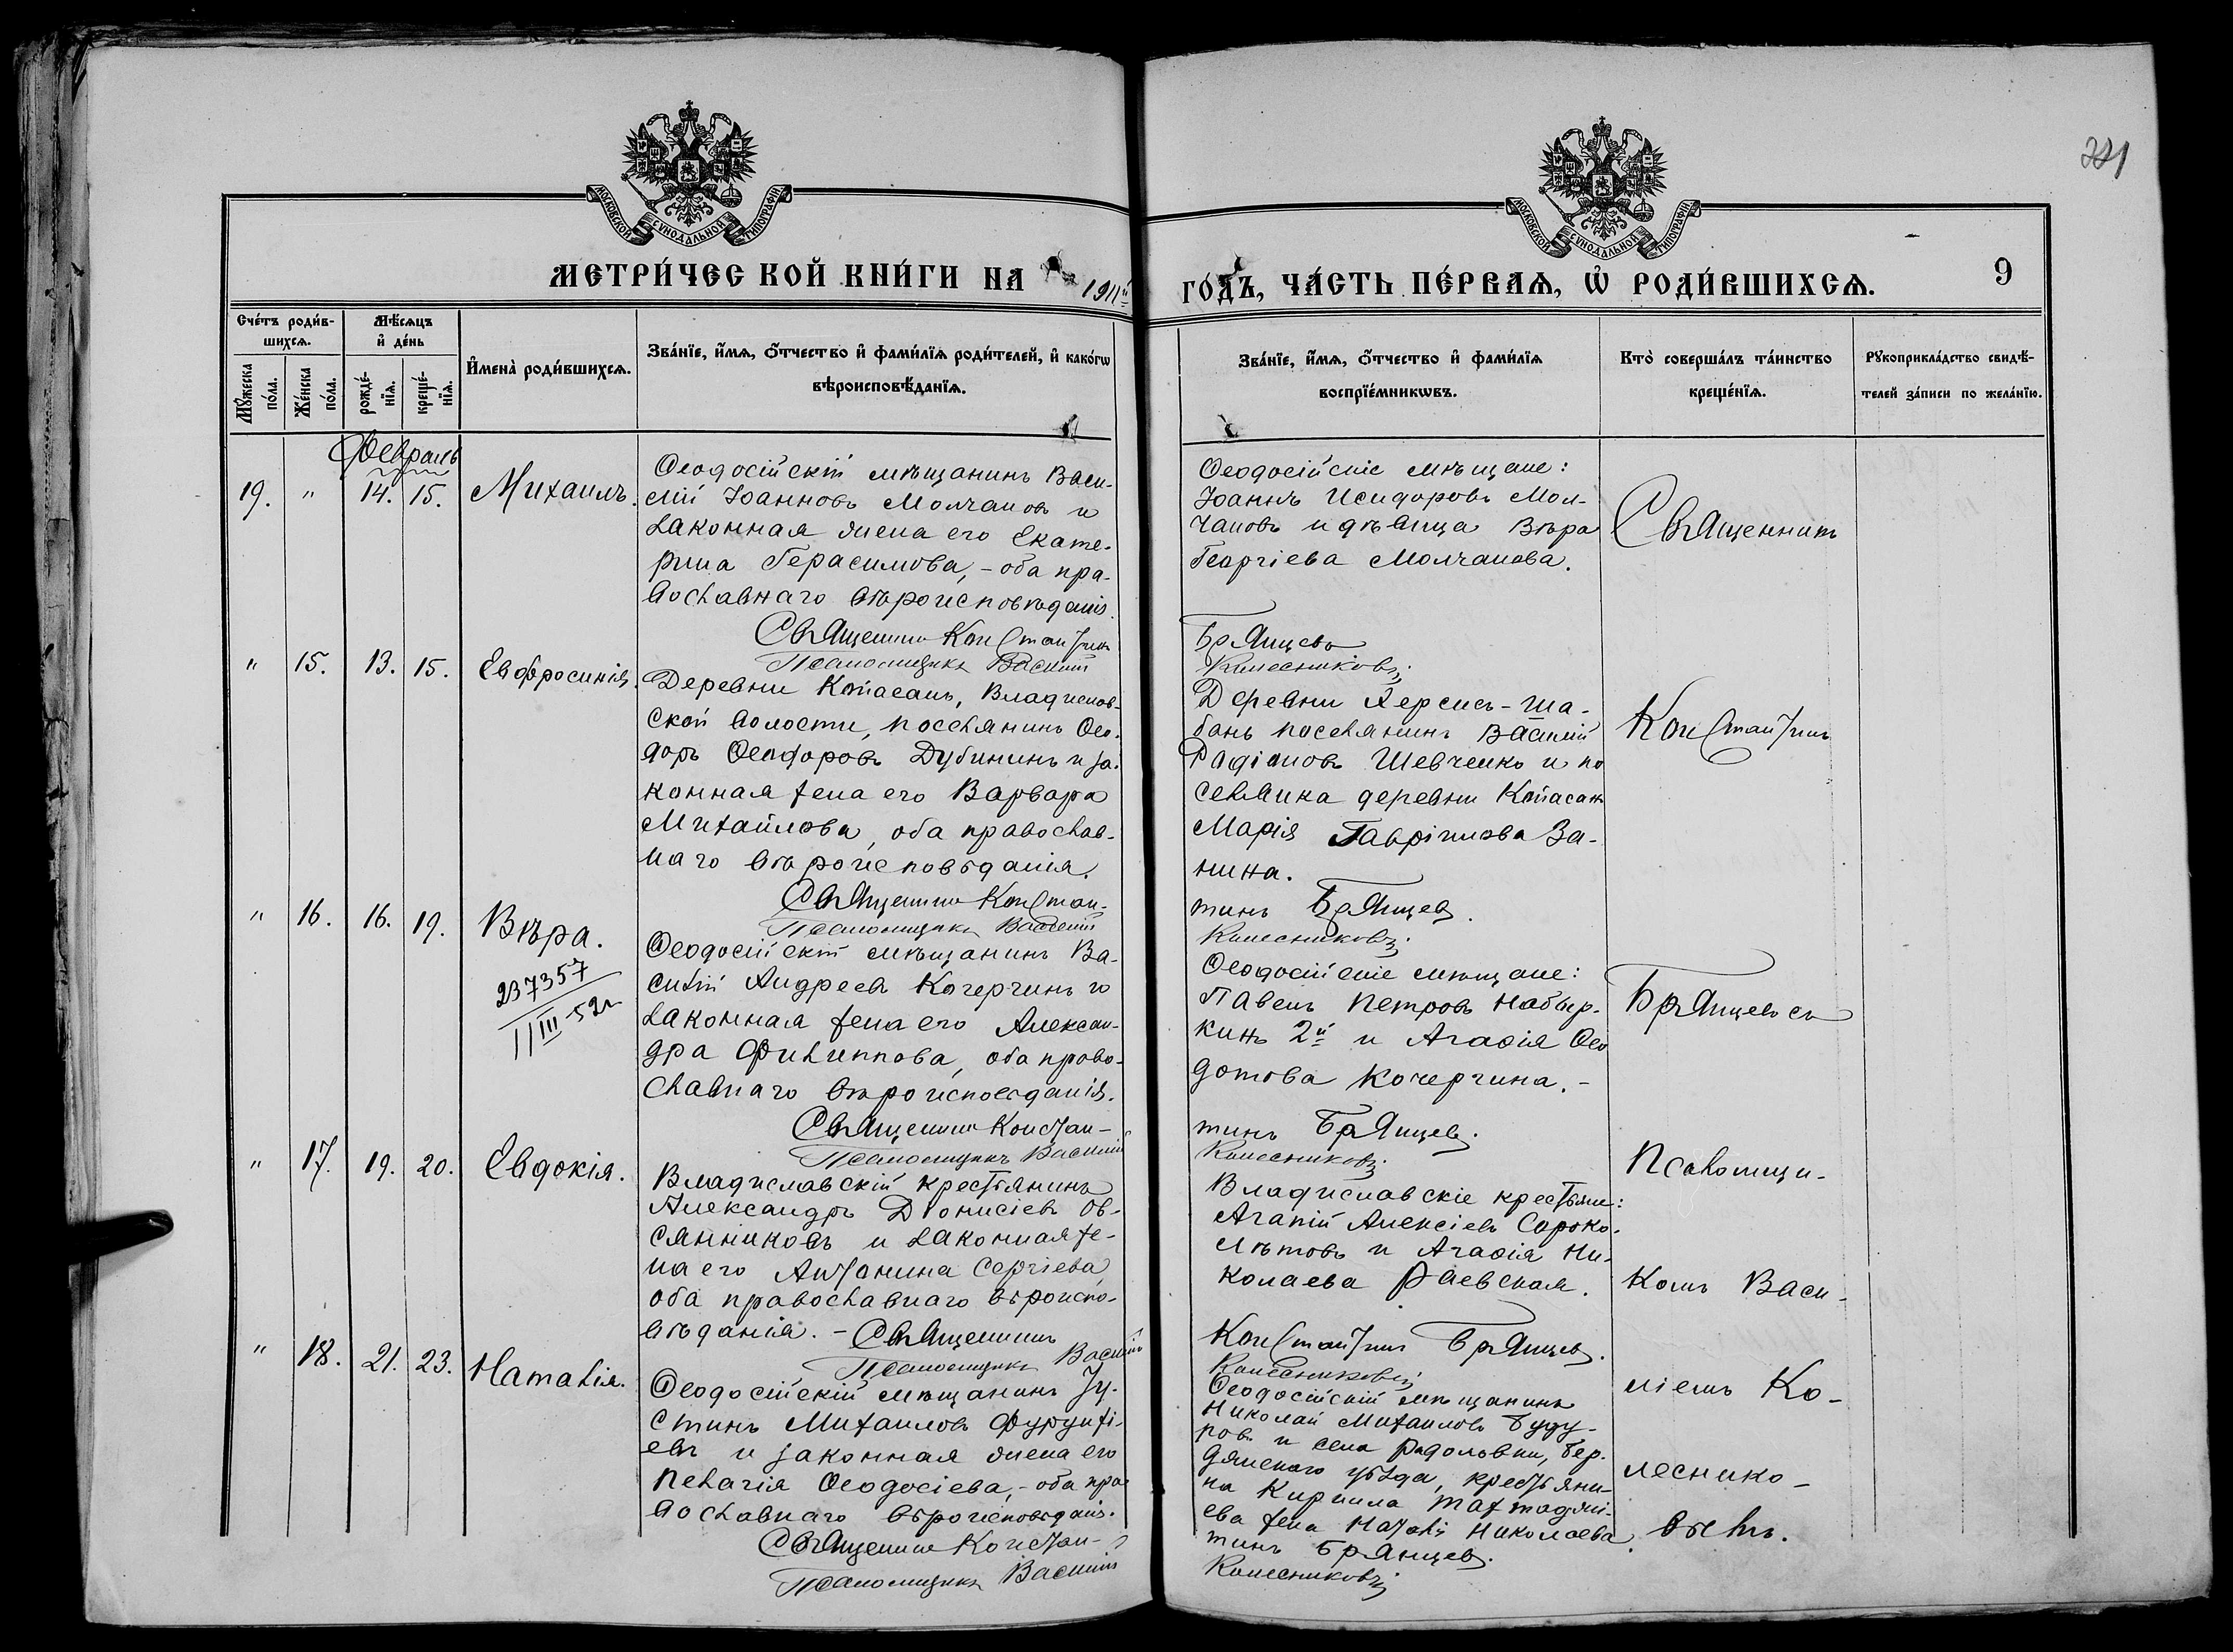 221
МОСКОВСКОЙ СУНОДАЛЬНОЙ ТИПОГРАФІИ
МОСКОВСКОЙ СУНОДАЛЬНОЙ ТИПОГРАФІИ
МЕТРИ́ЧЕС КОЙ КНИ́ГИ НА 1911й
ГО́ДЪ, ЧА́СТЬ ПЕ́РВАѦ, Ѡ РОДИ́ВШИХСѦ. 9
Сче́тъ роди́в-
шихсѧ.
Мꙋ́жеска по́ла.
Же́нска по́ла.
Мѣ́сѧцъ
и де́нь
рожде́-
нїѧ.
креще́-
нїѧ.
И҆мена̀ роди́вшихсѧ.
Зва́нїе, и҆́мѧ, ѻ҆́тчество и҆ фами́лїѧ роди́телей, и҆ како́гѡ
вѣроисповѣ́данїѧ.
Зва́нїе, и҆́мѧ, ѻ҆́тчество и҆ фами́лїѧ
воспрїе́мникѡвъ.
Кто̀ соверша́лъ та́инство
креще́нїѧ.
Рꙋкоприкла́дство свидѣ́-
телей за́писи по жела́нїю.
Февраль
19. " 14. 15. Михаилъ.
Ѳеодосійскій мѣщанинъ Васи-
лій Іоанновъ Молчановъ и
законная жена его Екате-
рина Герасимова, - оба пра-
вославнаго вѣроисповѣданія.
Священникъ Константинъ
Псаломщикъ Василій
Ѳеодосійскіе мѣщане:
Іоаннъ Исидоровъ Мол-
чановъ и дѣвица Вѣра
Георгіева Молчанова.
Брянцевъ
Колесниковъ
Священникъ
" 15. 13. 15. Евфросинія.
Деревни Копасанъ, Владислов-
ской волости, поселянинъ Ѳео-
доръ Ѳеодоровъ Дубининъ и за-
конная жена его Варвара
Михайлова, оба православ-
наго вѣроисповѣданія.
Священникъ Констан-
Псаломщикъ Василій
Деревни Херсисъ-ша-
бань поселянинъ Василій
Радіоновъ Шевченко и по
селянка деревни Копасанъ
Марія Гавріилова За-
нина.
тинъ Брянцевъ.
Колесниковъ
Константинъ
" 16. 16. 19. Вѣра.
237357
1/III-52г
Ѳеодосійскій мѣщанинъ Ва-
силій Андреевъ Кочергинъ и
законная жена его Алексан-
дра Филиппова, оба право-
славнаго вѣроисповѣданія.
Священникъ Констан-
Псаломщикъ Василій
Ѳеодосійскіе мѣщане:
Павелъ Петровъ Набыр-
кинъ 2й и Агафія Ѳео
дотова Кочергина. -
тинъ Брянцевъ.
Колесниковъ
Брянцевъ съ
" 17. 19. 20. Евдокія.
Владиславскій крестьянинъ
Александръ Діонисіевъ Ов-
сянниковъ и законная же-
на его Антонина Сергіева,
оба православнаго вѣроиспо-
вѣданія. - Священникъ
Псаломщикъ Василій
Владиславскіе крестьяне:
Агапій Алексіевъ Сороко-
лѣтовъ и Агафія Ни-
колаева Раевская.
Константинъ Брянцевъ.
Колесниковъ
Псаломщи-
комъ Васи-
" 18. 21. 23. Наталія.
Ѳеодосійскій мѣщанинъ Іу-
стинъ Михаиловъ Фурунжі-
евъ и законная жена его
Пелагія Ѳеодосіева, - оба пра
вославнаго вѣроисповѣданія.
Священникъ Констан-
Псаломщикъ Василій
Ѳеодосійскій мѣщанинъ
Николай Михаиловъ Буду-
ровъ и села Радоловки, Бер-
дянскаго уѣзда, крестьяни-
на Кирилла
ева жена Наталія Николаева.
тинъ Брянцевъ.
Колесниковъ
ліемъ Ко-
леснико-
вымъ.